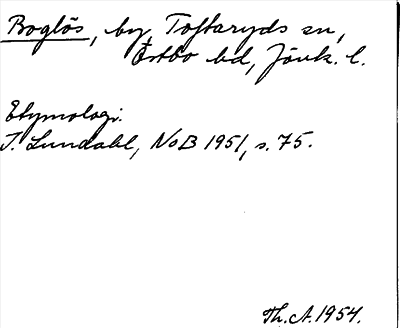 Boglös, by, Toftaryds sn,
Östbo hd, Jönk. l.
Etymologi.
I. Lundahl, NoB 1951, s. 75.
Th. A. 1954.